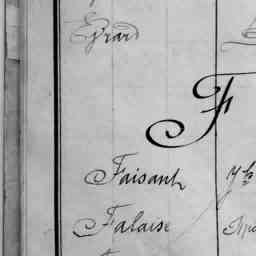 Eyrard
F
Faisant
Falaise